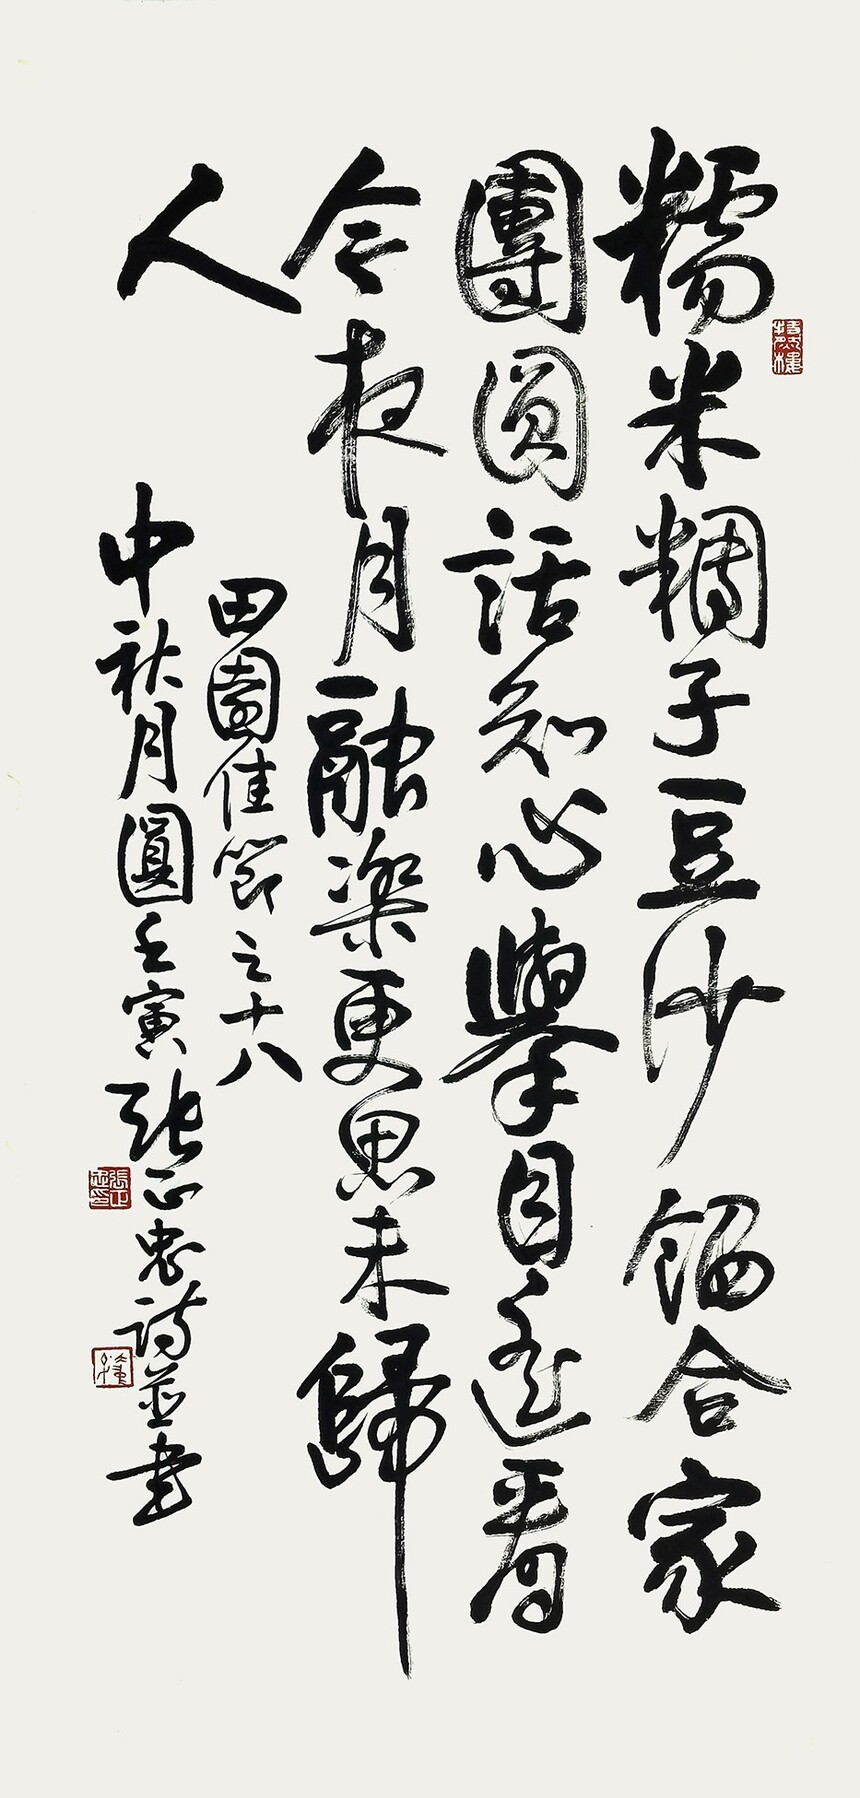 糯米糰子豆沙餡合家
團圓話知心舉目遙看
今夜月融樂更思未歸
人
田園佳節之十八
中秋月圓壬寅張正忠詩並書
張正忠印